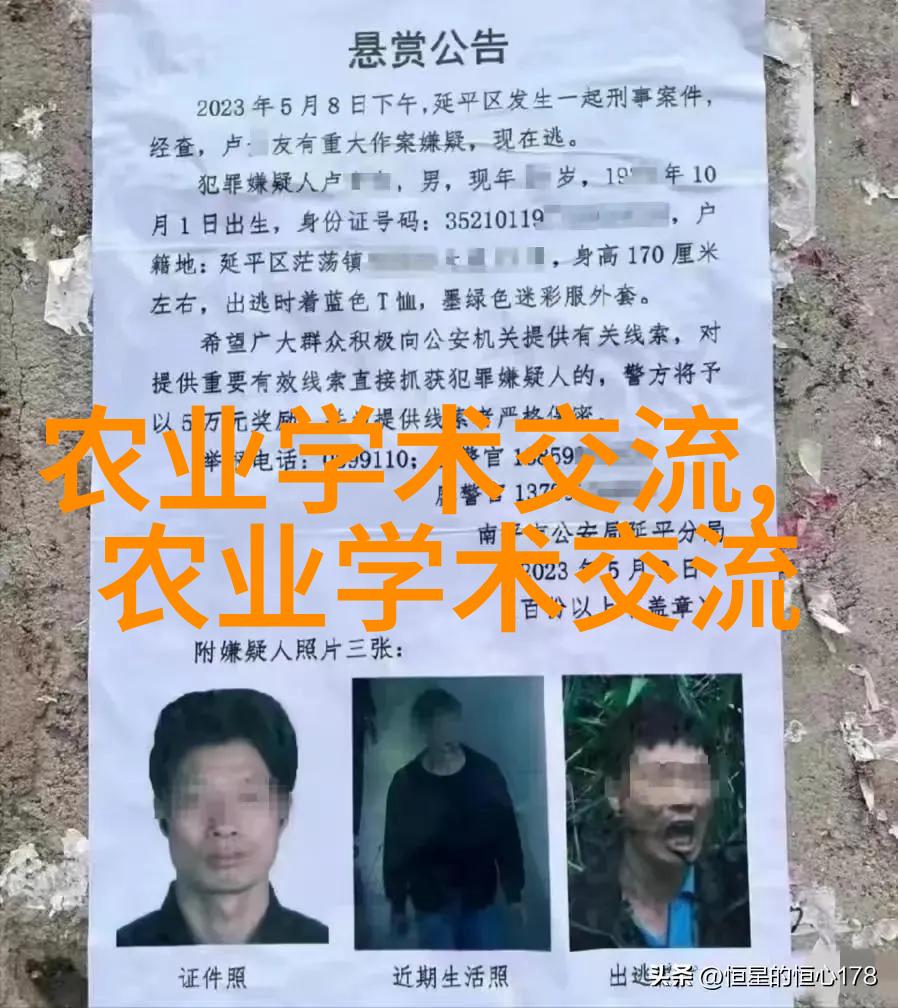 悬赏公告
2023年5月8日下午,延平区发生一起刑事案件,
经查,卢 友有重大作案嫌疑,现在逃。
犯罪嫌疑人卢 ,男,现年 岁,19 年10
月1日出生,身份证号码:35210119 ,户
籍地:延平区茫荡镇 ,身高170厘米
左右,出逃时着蓝色T恤,墨绿色迷彩服外套。
希望广大群众积极向公安机关提供有关线索,对
提供重要有效线索直接抓获犯罪嫌疑人的,警方将予
以5万元奖励 提供线索者严格保密。
农业学术交流,
举报电话:0599110; 警官13859
警官137
农业学术交流
南 公安局延平分局
2023年5月 日
百份以上 盖章
附嫌疑人照片三张:
证件照 近期生活照 出逃
头条 @恒星的恒心178